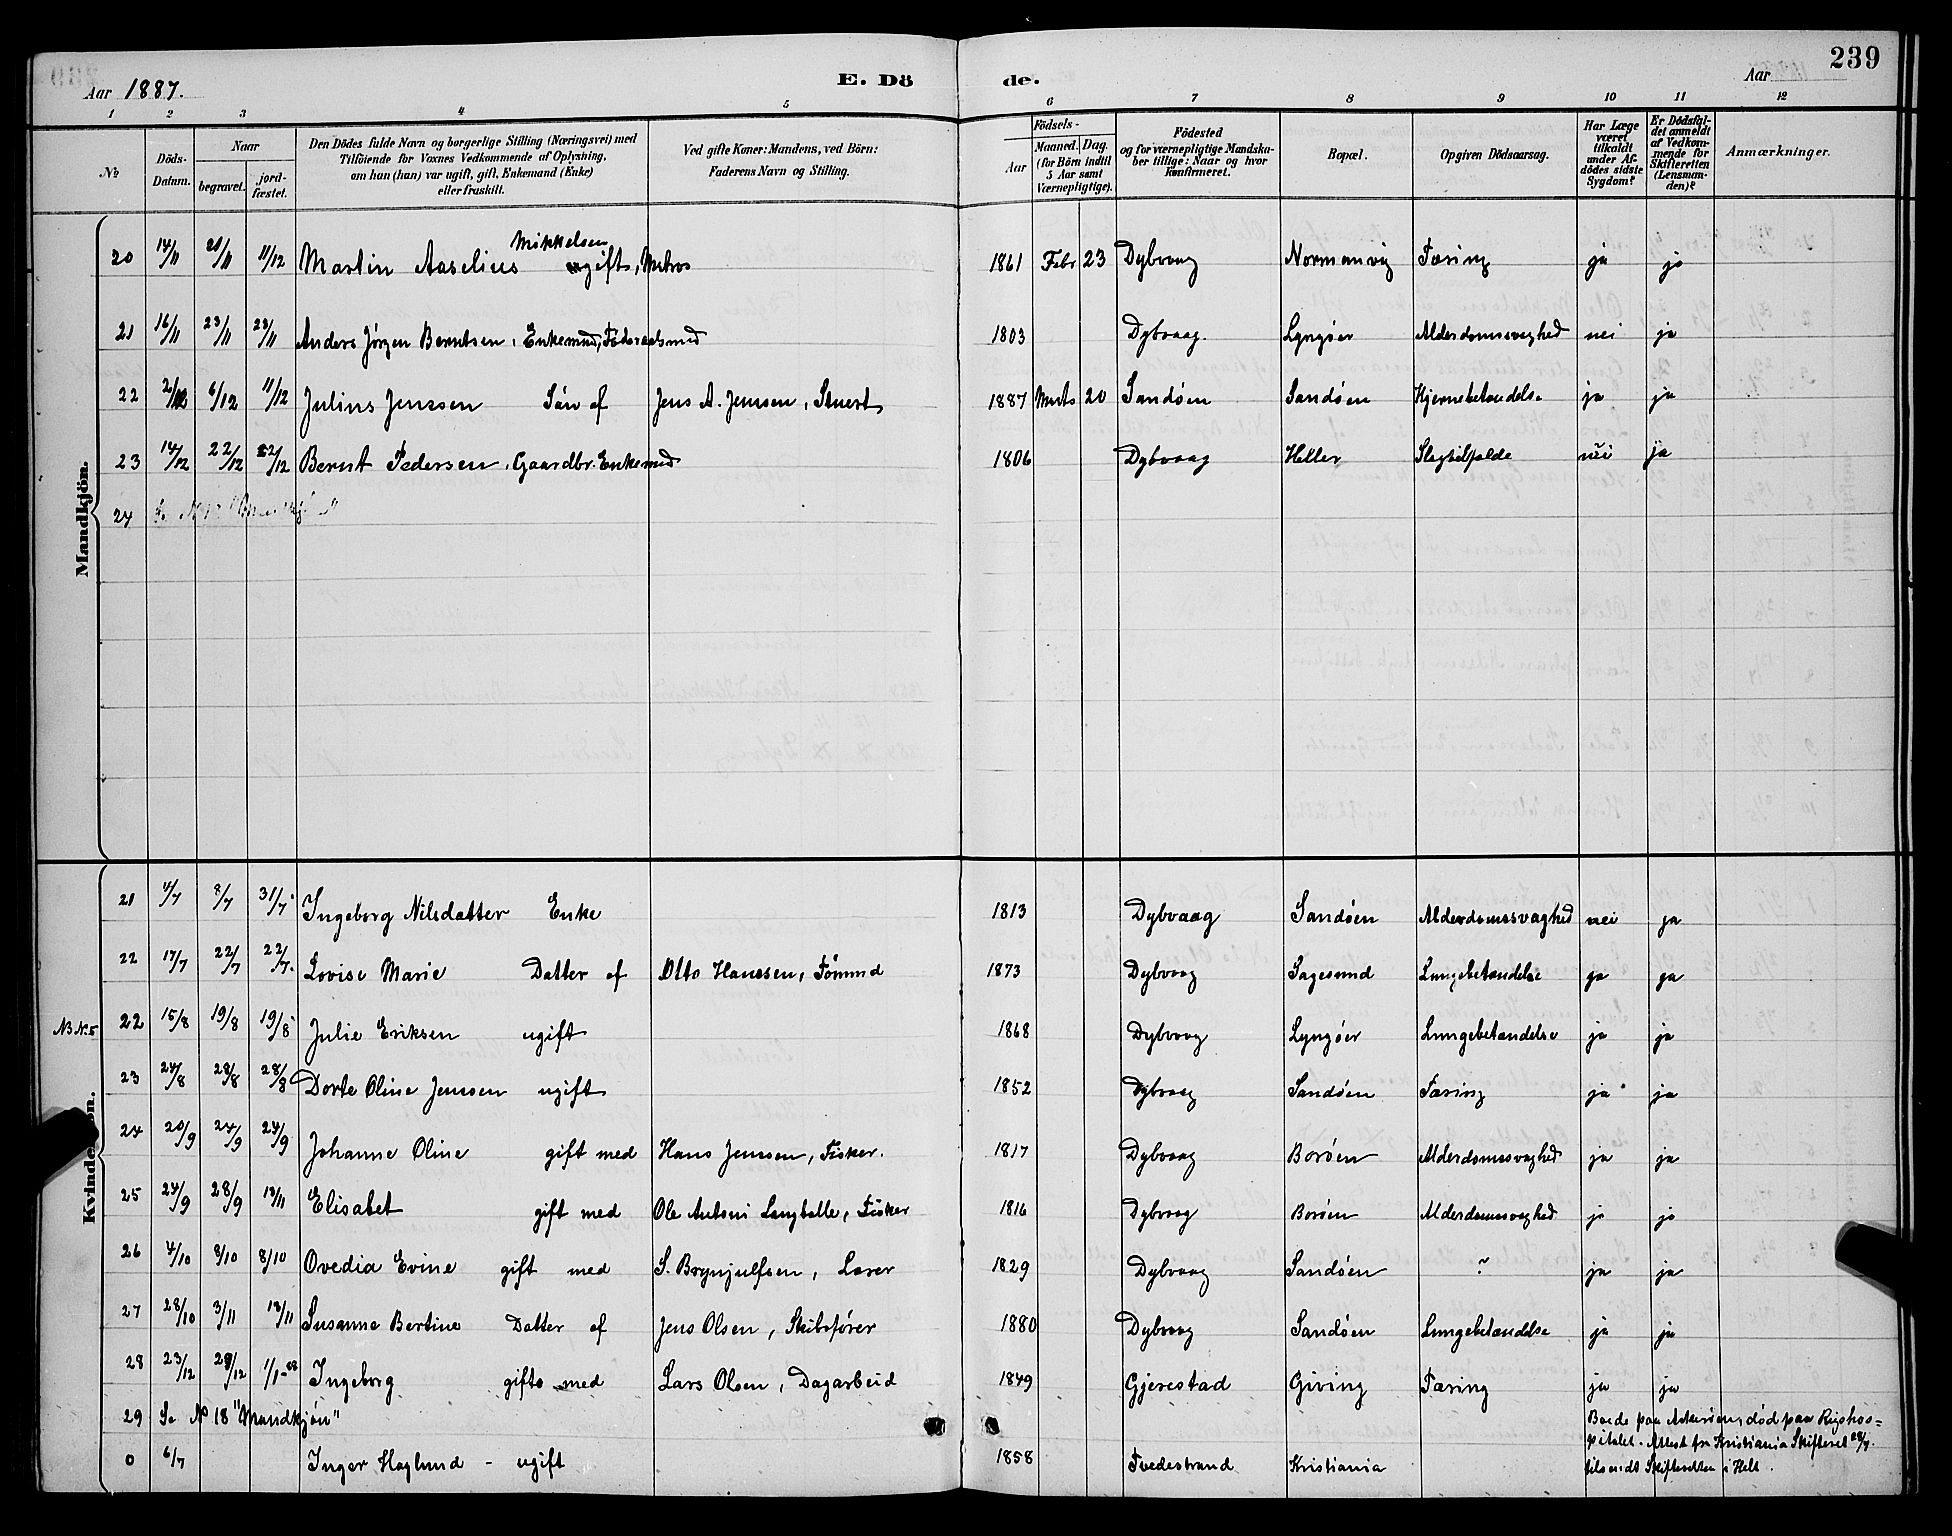 239
Aar 1887. E. Dö de. Aar
1 2 3 4 5 6 7 8 9 10 11 12
№ Döds-Datum. Naar begravet. jordfæstet. Den Dödes fulde Navn og borgerlige Stilling (Næringsvei) med Tilföiende for Voxnes Vedkommende af Oplysning, om han (hun) var ugift, gift, Enkemand (Enke) eller fraskilt. Ved gifte Koner: Mandens, ved Börn: Faderens Navn og Stilling. Födsels- Aar Maaned. Dag. (for Börn indtil 5 Aar samt Værnepligtige). Födested og for værnepligtige Mandskaber tillige: Naar og hvor konfirmeret. Bopæl. Opgiven Dödsaarsag. Har Læge været tilkaldt under Afdödes sidste Sygdom? Er Dödsfaldet anmeldt af Vedkommende for Skifteretten (Lensmanden)? Anmærkninger.
Mandkjön.
20 14/11 21/11 11/12 Martin Aaselius Mikkelsen ugift, Matros 1861 Febr 23 Dybvaag Normanvig Tæring ja ja
21 16/11 23/11 23/11 Anders Jörgen Berntsen, Enkemnd, Föderaadsmnd 1803 Dybvaag. Lyngöer Alderdomssvaghed nei ja
22 2/12 6/12 11/12 Julius Jenssen Sön af Jens A. Jenssen, Stuert 1887 Marts 20 Sandöen Sandöen Hjernebetændelse ja ja
23 14/12 22/12 22/12 Bernt Pedersen, Gaardbr. Enkemnd 1806 Dybvaag Heller Slagtilfælde nei ja
24 Se No
Kvindekjön.
21 4/7 8/7 31/7 Ingeborg Nilsdatter Enke 1813 Dybvaag Sandöen Alderdomssvaghed nei ja
22 17/7 22/7 22/7. Lovise Marie Datter af Otto Hanssen, Tömmd 1873 Dybvaag Sagesund Lungebetændelse ja ja
NB No. 5 22 15/8 19/8 19/8 Julie Eriksen ugift 1868 Dybvaag Lyngöer Lungebetændelse ja ja
23 24/8 28/8 28/8 Dorte Oline Jenssen ugift 1852 Dybvaag Sandöen Tæring ja ja
24 20/9 24/9 24/9 Johanne Oline gift med Hans Jenssen, Fisker. 1817 Dybvaag Boröen Alderdomssvaghed ja ja
25 24/9 28/9 13/11 Elisabet gift med Ole Antoni Langbølle, Fisker 1816 Dybvaag Boröen Alderdomssvaghed ja ja
26 4/10 8/10 8/10 Ovedia Evine gift med S. Brynjulfsen, Lærer 1829 Dybvaag Sandöen ? ja ja
27 28/10 3/11 13/11 Susanne Bertine Datter af Jens Olsen, Skibsförer 1880 Dybvaag Sandöen Lungebetændelse ja ja
28 23/12 29/12 1/1-88 Ingeborg gift med Lars Olsen, Dagarbeid 1849 Gjerestad Giving Tæring ja ja
29 Se No 18 "Mandkjön"
0 6/7 Inger Haglund - ugift 1858 Tvedestrand Kristiania
Boede paa Askeröen, död paa Rigshos=
pitalet. Attest fra Kristiania Skifteret 28/7.
tilsendt Skifteretten i Holt.